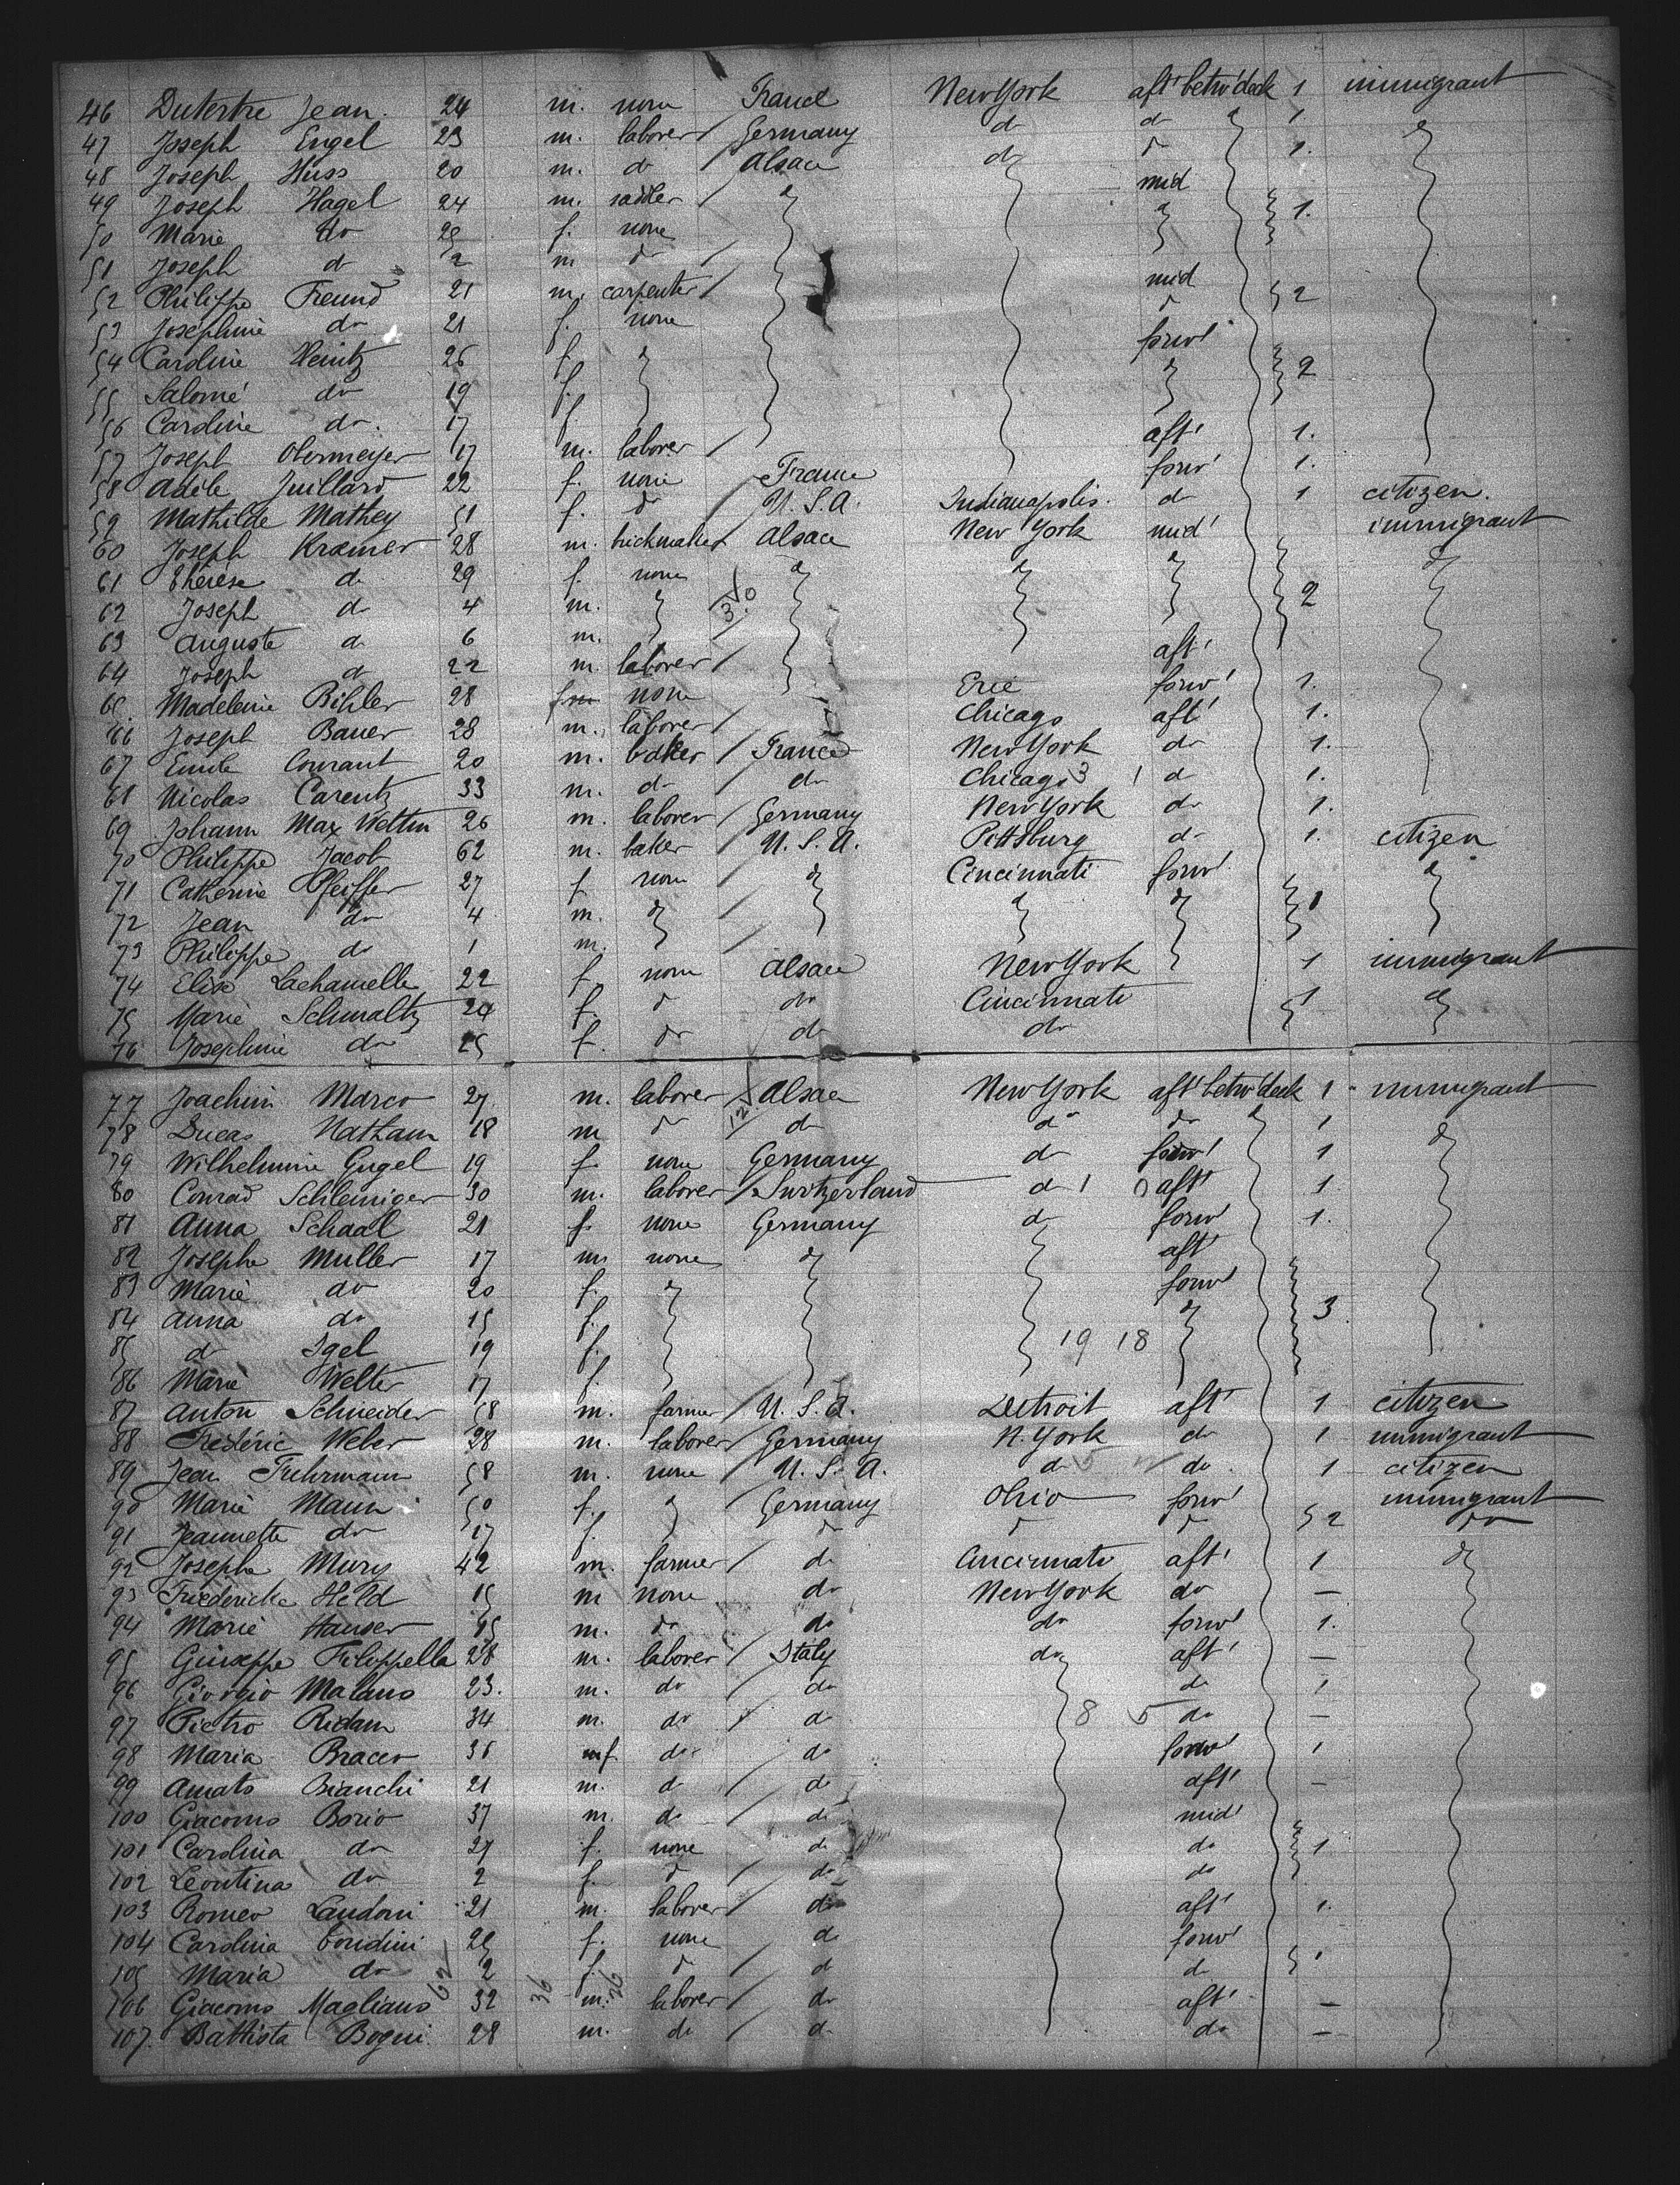 46 Dutertre Jean. 24 m. none France New York aft' betw' deck 1 immigrant
47 Joseph Engel 23 m. laborer / Germany do do 1
48 Joseph Huss 20 m. do / Alsace do do 1.
49 Joseph Hagel 24 m. sadler / mid
50 Marie do 25 f. none 1.
51 Joseph do 2 m do /
52 Philippe Freund 21 m. carpenter / mid
53 Josephine do 21 f. none do 2
54 Caroline Heintz 26 f. forw'
55 Salomé do 19 f. 2
56 Caroline do. 17 f.
57 Joseph Obermeyer 17 m. laborer / aft' 1.
58 Adèle Juillard 22 f. none France forw' 1.
59 Mathilde Mathey 51 f. do / U. S. A. Indianapolis. do 1 citizen.
60 Joseph Kræmer 28 m. brickmaker Alsace New York mid' immigrant
61 Thérèse do 29 f. none
62 Joseph do 4 m. 30 2
63 Auguste do 6 m.
64 Joseph do 22 m. laborer / aft'
65. Madeleine Bihler 28 f. none Erie forw' 1.
66 Joseph Bauer 28 m. laborer / Chicago aft' 1.
67 Emile Courant 20 m. baker / France New York do 1.
68 Nicolas Carentz 33 m. do / do Chicago 3 1 do 1.
69 Johann Max Weltin 26 m. laborer / Germany New York do 1.
70 Philippe Jacob 62 m. baker / U. S. A. Pittsburg do 1. citizen
71 Catherine Pfeiffer 27 f. none / Cincinnati forw'
72 Jean do 4 m. / 1
73 Philippe do 1 m. /
74 Elise Lachamelle 22 f. none Alsace New York 1 immigrant
75 Marie Schmaltz 24 f. do do Cincinnati 1
76 Josephine do 25 f. do do do
77 Joachim Marco 27. m. laborer / Alsace New York aft' betw' deck 1 immigrant
78 Ducas Nathan 18 m do 12 / do do do 1
79 Wilhelmine Gugel 19 f. none Germany do forw' 1
80 Conrad Schleiniger 30 m. laborer / Switzerland do 1 0 aft' 1
81 Anna Schaal 21 f. none Germany do forw' 1.
82 Joseph Muller 17 m. none aft'
83 Marie do 20 f. forw'
84 Anna do 15 f. 3
85 do Igel 19 f. 19 18
86 Marie Welter 17 f.
87 Anton Schneider 58 m. farmer / U. S. A. Detroit aft' 1 citizen
88 Fredéric Weber 28 m. laborer / Germany N. York do 1 immigrant
89 Jean Fuhrmann 58 m. none / U. S. A. do 5 do 1 citizen
90 Marie Mann 50 f. Germany Ohio forw' immigrant
91 Jeannette do 17 f. do do do 2 do
92 Joseph Mury 42 m. farmer / do Cincinnati aft' 1
93 Friedericke Held 15 m none do New York do —
94 Marie Hauser 25 m. do do do forw' 1.
95 Giuseppe Filippella 28 m. laborer / Italy do aft' —
96 Giorgio Malano 23. m. do / do do 1
97 Pietro Ridam 34 m. do / do 8 5 do —
98 Maria Bracer 35 mf. do do forw' 1
99 Amato Bianchi 21 m. do / do aft' —
100 Giacomo Borio 37 m. do / do mid'
101 Carolina do 27 f. none do do 1
102 Leontina do 2 f. do / do do
103 Romeo Landoni 21 m. laborer / do aft' 1.
104 Carolina Condini 25 f. none do forw'
105 Maria do 2 f. do / do do 1
106 Giacomo Magliano 62 32 36 m. 26 laborer / do aft' —
107. Battista Bogni 28 m. do / do do —